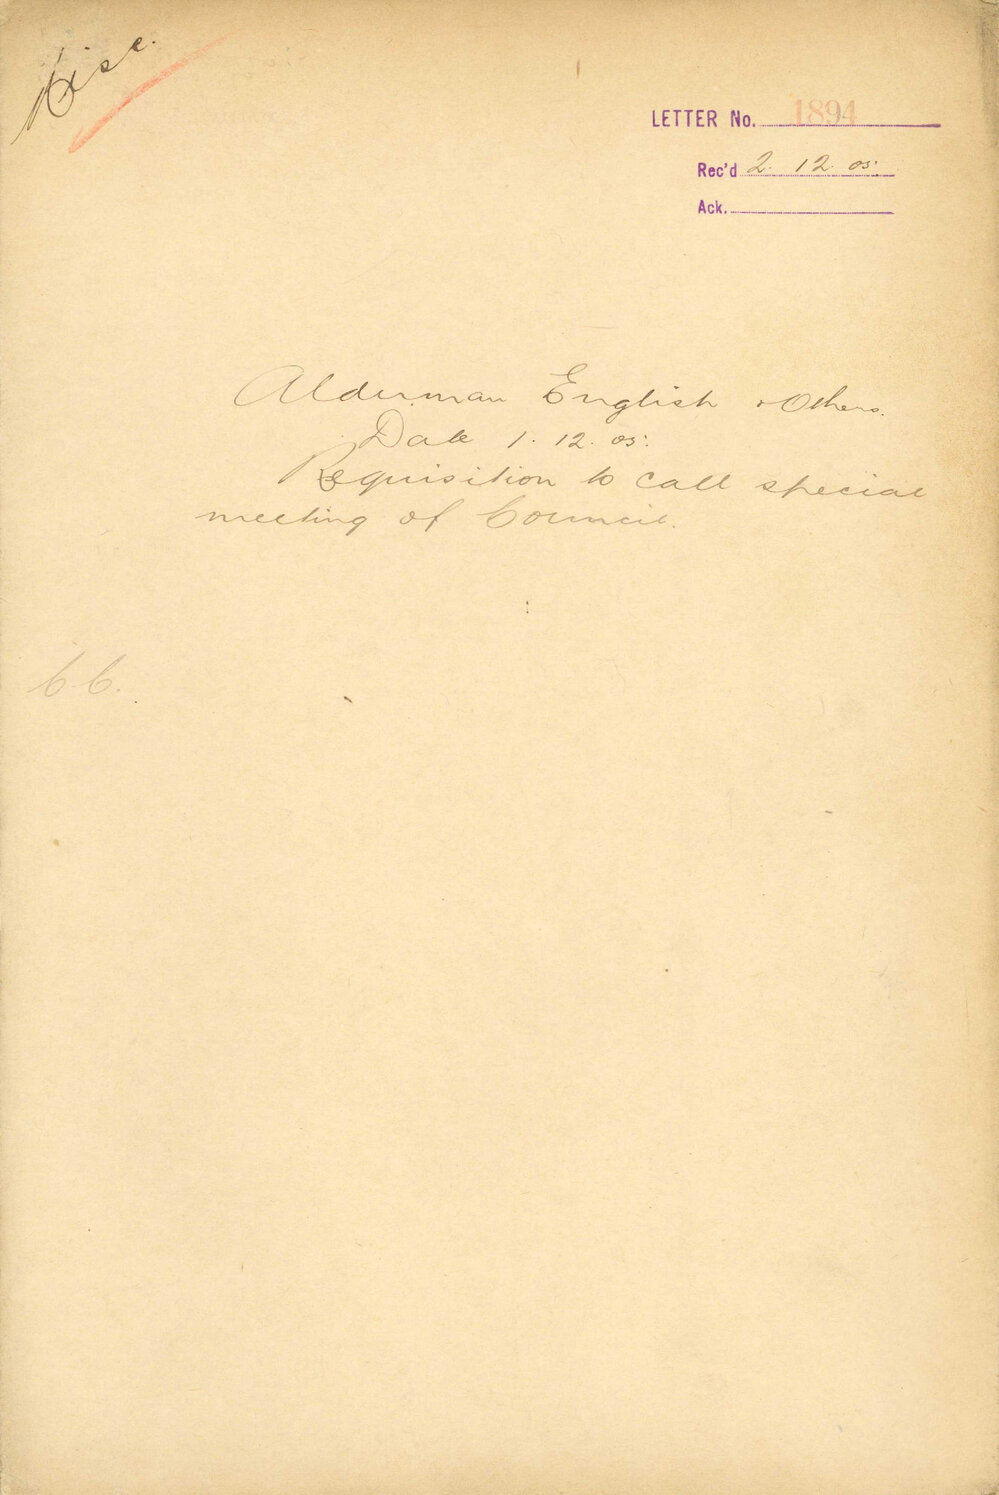 Misc.
LETTER No. 1894
Rec'd 2. 12. 05.
Ack.
Alderman English & Others.
Date 1. 12. 05.
Requisition to call special
meeting of Council.
C.C.